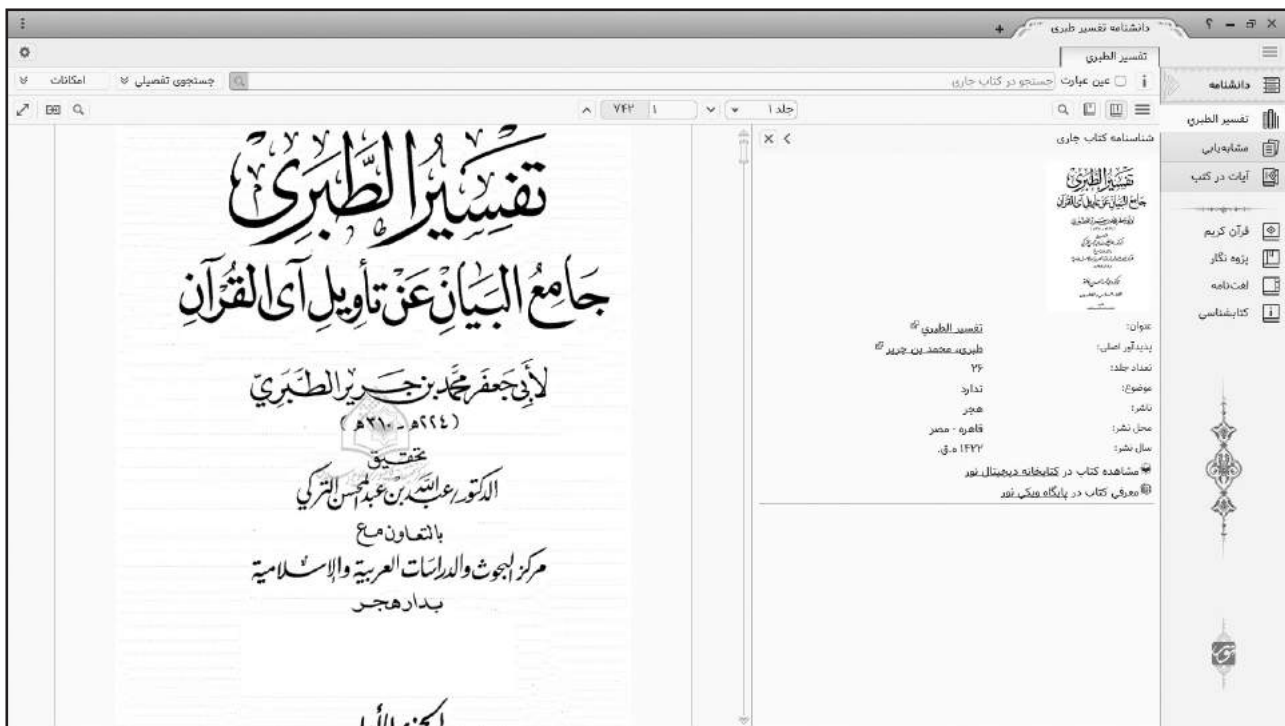 دانشنامه تفسیر طبری
تفسیر الطبري
عین عبارت
جستجو در کتاب جاری
جستجوی تفصیلی
امکانات
جلد ۱
۱
۷۴۲
دانشنامه
تفسیر الطبري
مشابه‌یابی
آیات در کتب
قرآن کریم
پژوه نگار
لغت‌نامه
کتابشناسی
شناسنامه کتاب جاری
تفسير الطبري
جامع البيان عن تأويل آي القرآن
عنوان: تفسير الطبري
پدیدآور اصلی: طبری، محمد بن جریر
تعداد جلد: ۲۶
موضوع: ندارد
ناشر: هجر
محل نشر: قاهره - مصر
سال نشر: ۱۴۲۲ ه.ق.
مشاهده کتاب در کتابخانه دیجیتال نور
معرفی کتاب در پایگاه ویکی نور
تَفسِيرُ الطَّبَرِي
جَامِعُ البَيَانِ عَنْ تَأوِيلِ آيِ القُرْآنِ
لأَبِي جَعفَر مُحَمَّد بن جَرير الطَّبَرِيّ
(٢٢٤هـ - ٣١٠هـ)
تحقيق
الدكتور/ عبد الله بن عبد المحسن التركي
بالتعاون مع
مركز البحوث والدراسات العربية والإسلامية
بدار هجر
الجزء الأول
نور